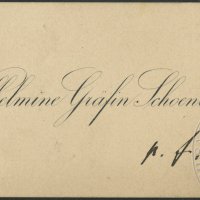 elmine Gräfin Schoen
p. f.